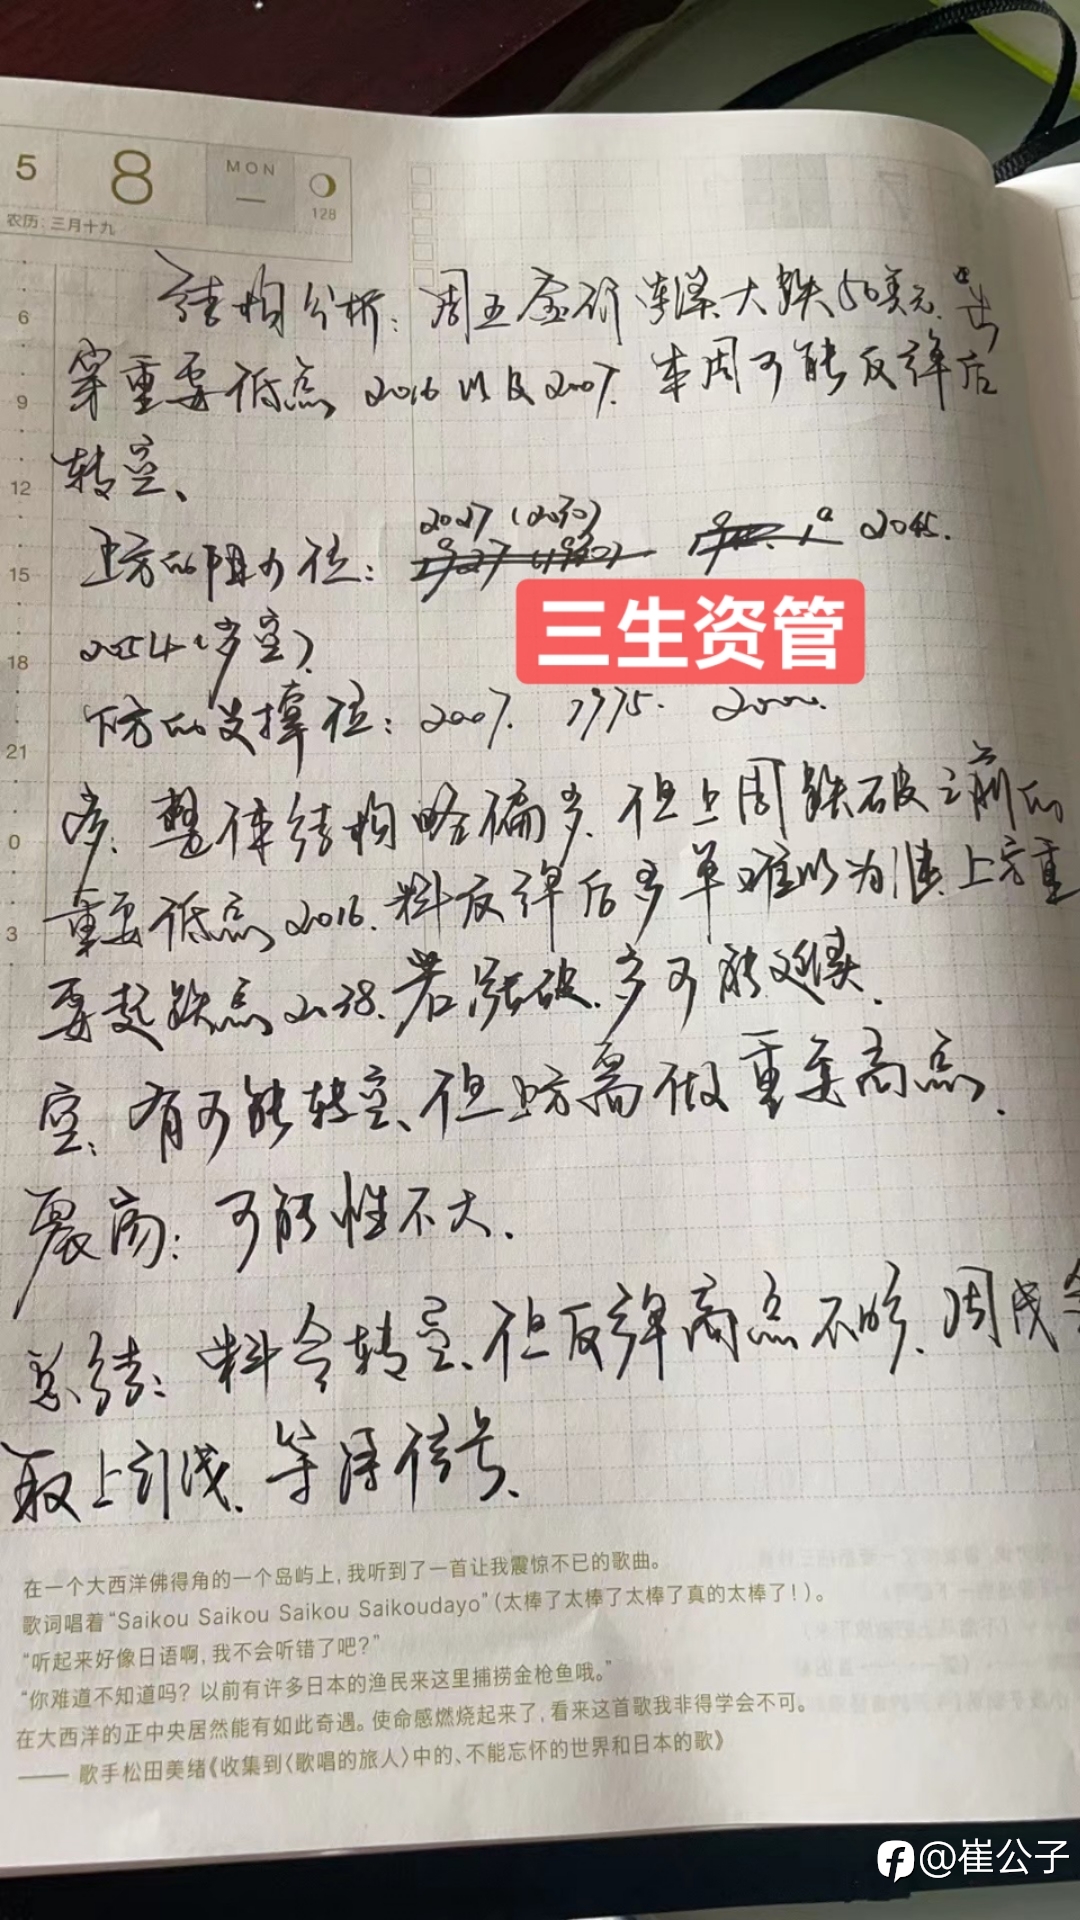 5 8 MON 一 128
农历：三月十九
结构分析：周五金价连续大跌50美元.
穿重要低点 2016 以及2007. 本周可能反弹后
转空、
2027 (2030)
上方的阻力位： 2045.
2054(岁空)
三生资管
下方的支撑位：2007. 1975. 2000.
多：整体结构略偏多. 但上周跌破之前的
重要低点2016. 料反弹后多单难以为继. 上方重
要起跌点2038. 若涨破. 多可能延续.
空：有可能转空、但上方需做重要高点.
震荡：可能性不大.
总结：料会转空、但反弹高点不够. 周线会
取上引线. 等待信号.
6
9
12
15
18
21
0
3
在一个大西洋佛得角的一个岛屿上，我听到了一首让我震惊不已的歌曲。
歌词唱着“Saikou Saikou Saikou Saikoudayo”（太棒了太棒了太棒了真的太棒了！）。
“听起来好像日语啊，我不会听错了吧？”
“你难道不知道吗？以前有许多日本的渔民来这里捕捞金枪鱼哦。”
在大西洋的正中央居然能有如此奇遇。使命感燃烧起来了，看来这首歌我非得学会不可。
—— 歌手松田美绪《收集到〈歌唱的旅人〉中的、不能忘怀的世界和日本的歌》
@崔公子